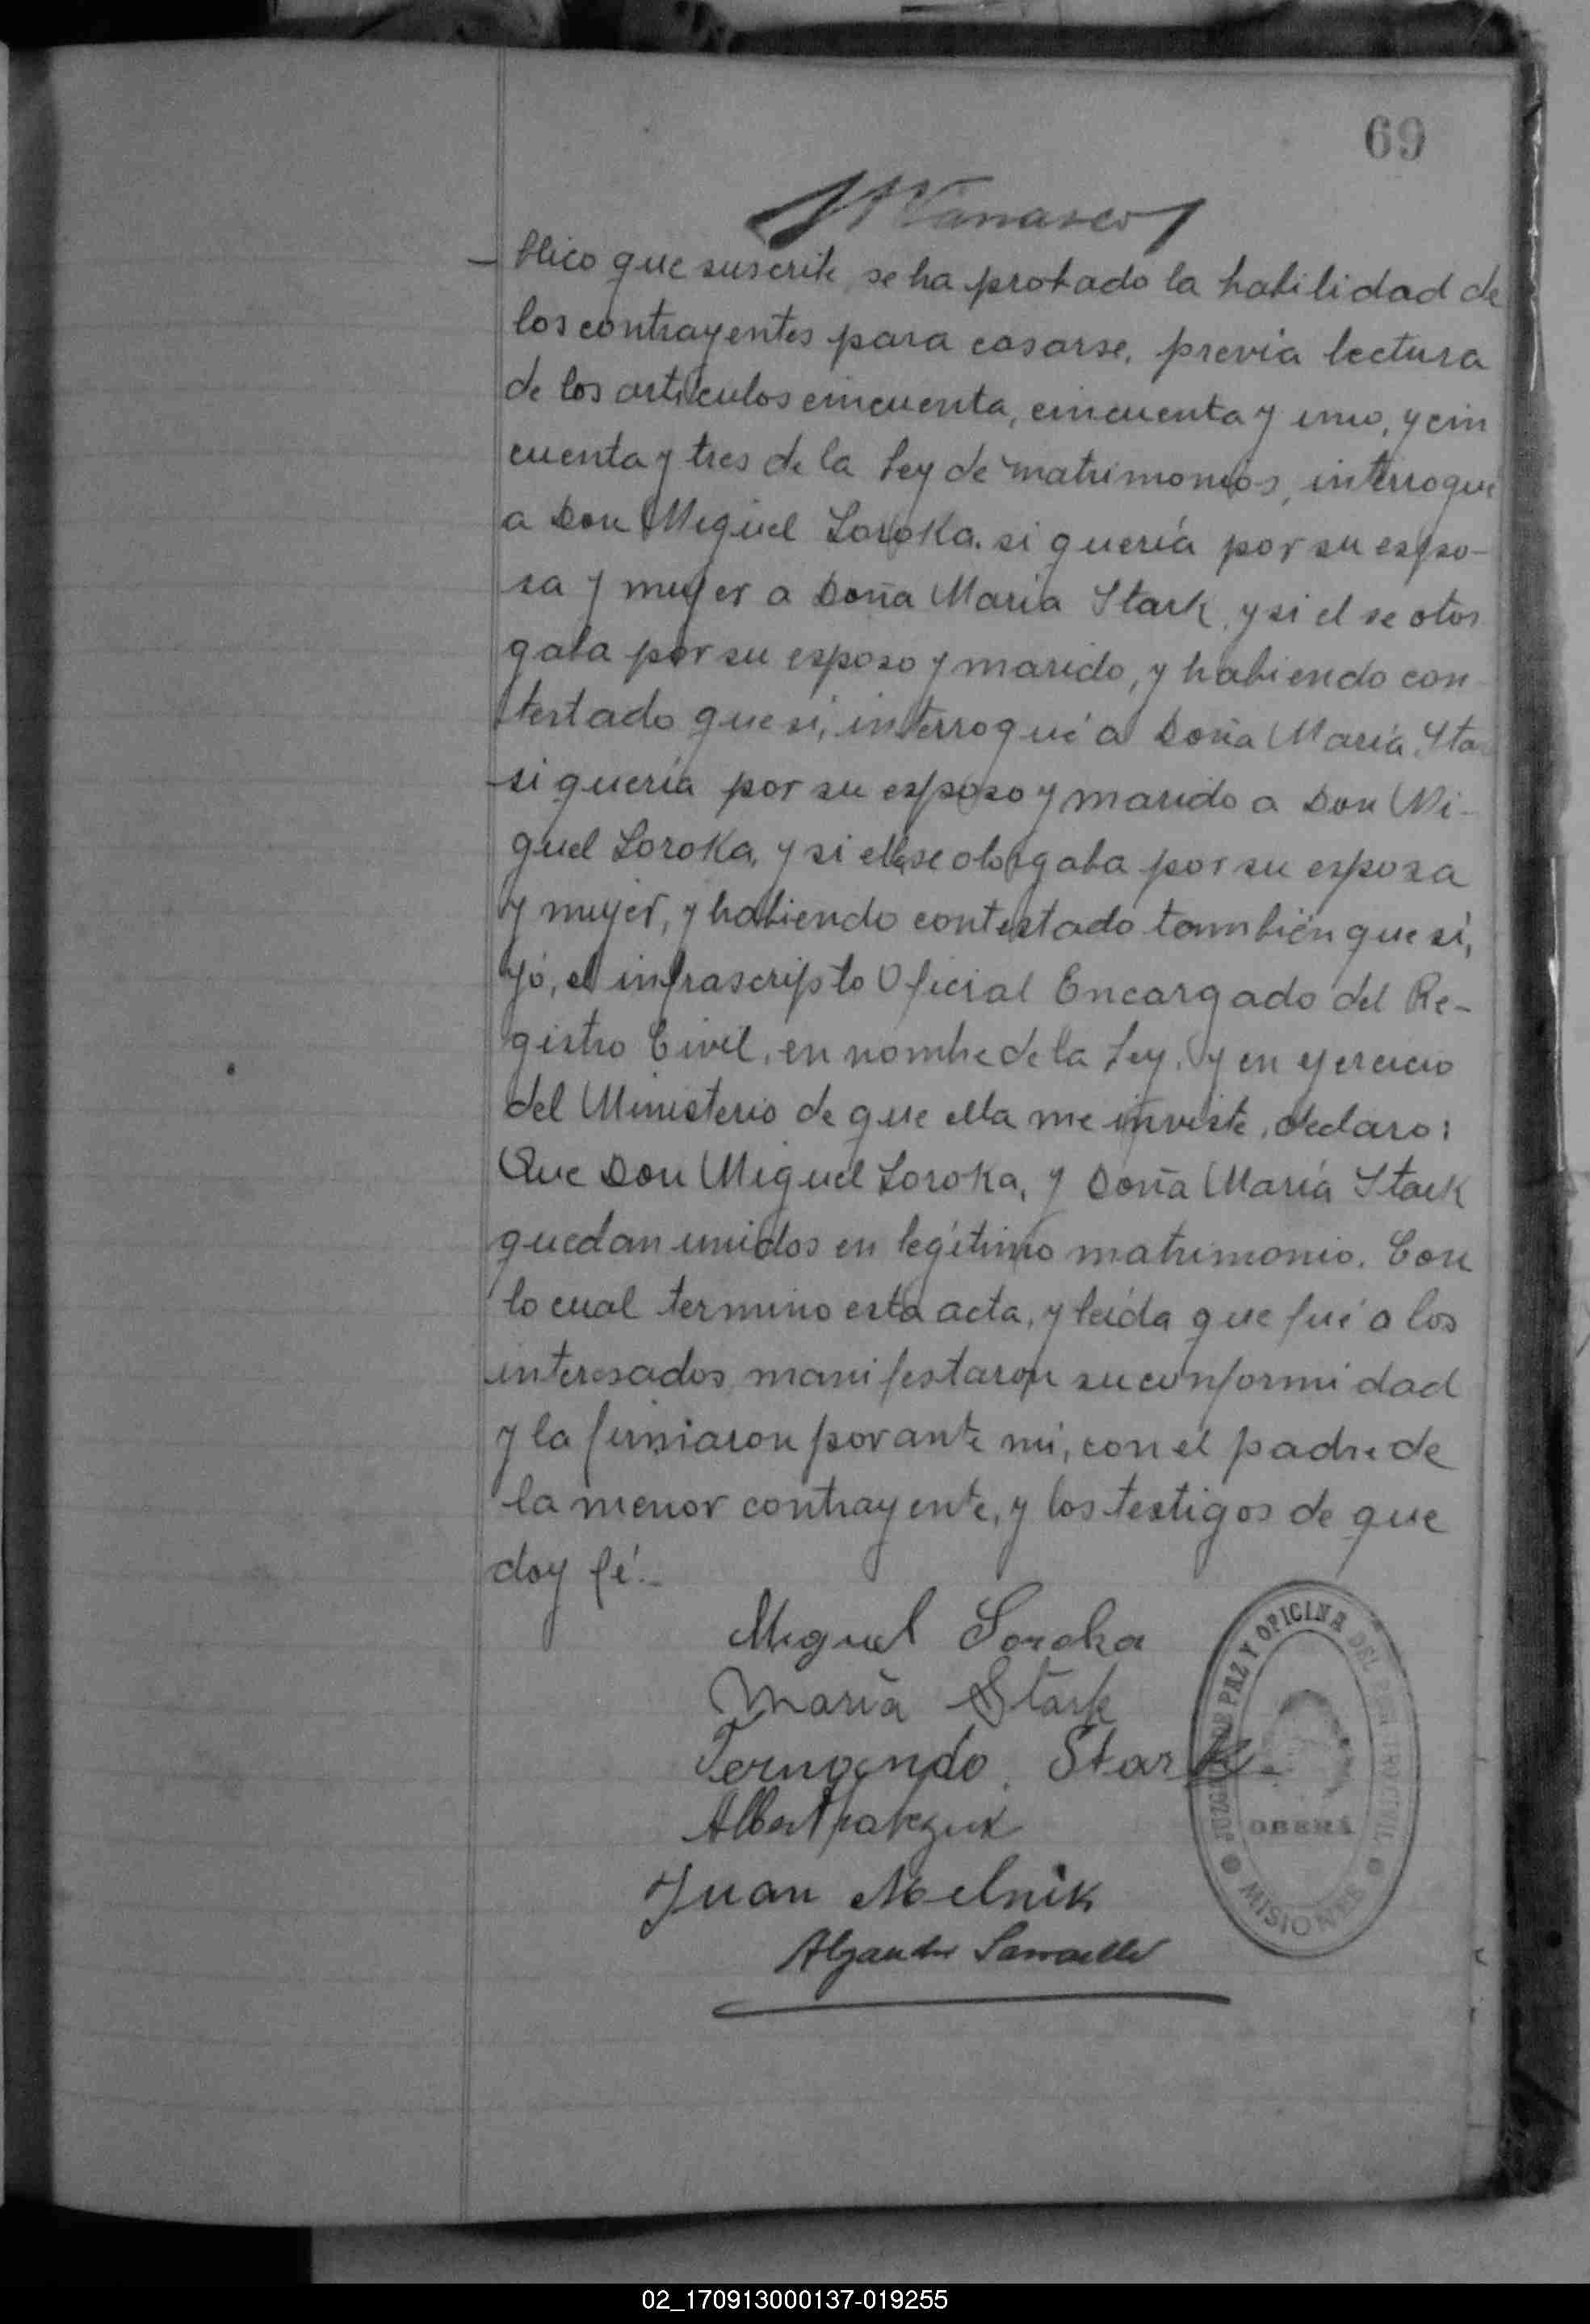 69
blico que suscribe, se ha probado la habilidad de
los contrayentes para casarse, previa lectura
de los artículos cincuenta, cincuenta y uno, y cin
cuenta y tres de la Ley de matrimonios, interrogué
a Don Miguel Soroka. si quería por su espo-
sa y mujer a Doña María Stark, y si el se otor
gaba por su esposo y marido, y habiendo con
testado que si, interrogué a Doña María Sta
si quería por su esposo y marido a Don Mi-
guel Soroka, y si ella se otorgaba por su esposa
y mujer, y habiendo contestado también que sí,
Yó, el infrascripto Oficial Encargado del Re-
gistro Civil, en nombre de la Ley, y en ejercicio
del Ministerio de que ella me inviste, declaro:
Que Don Miguel Soroka, y Doña María Stark
quedan unidos en legítimo matrimonio. Con
lo cual termino esta acta, y leída que fué a los
interesados, manifestaron su conformidad
y la firmaron por ante mí, con el padre de
la menor contrayente, y los testigos de que
doy fé.-
Miguel Soroka
María Stark
Fernando. Stark.
Juan Melnik
JUZGADO DE PAZ Y OFICINA DEL REGISTRO CIVIL
OBERÁ
MISIONES
02_170913000137-019255